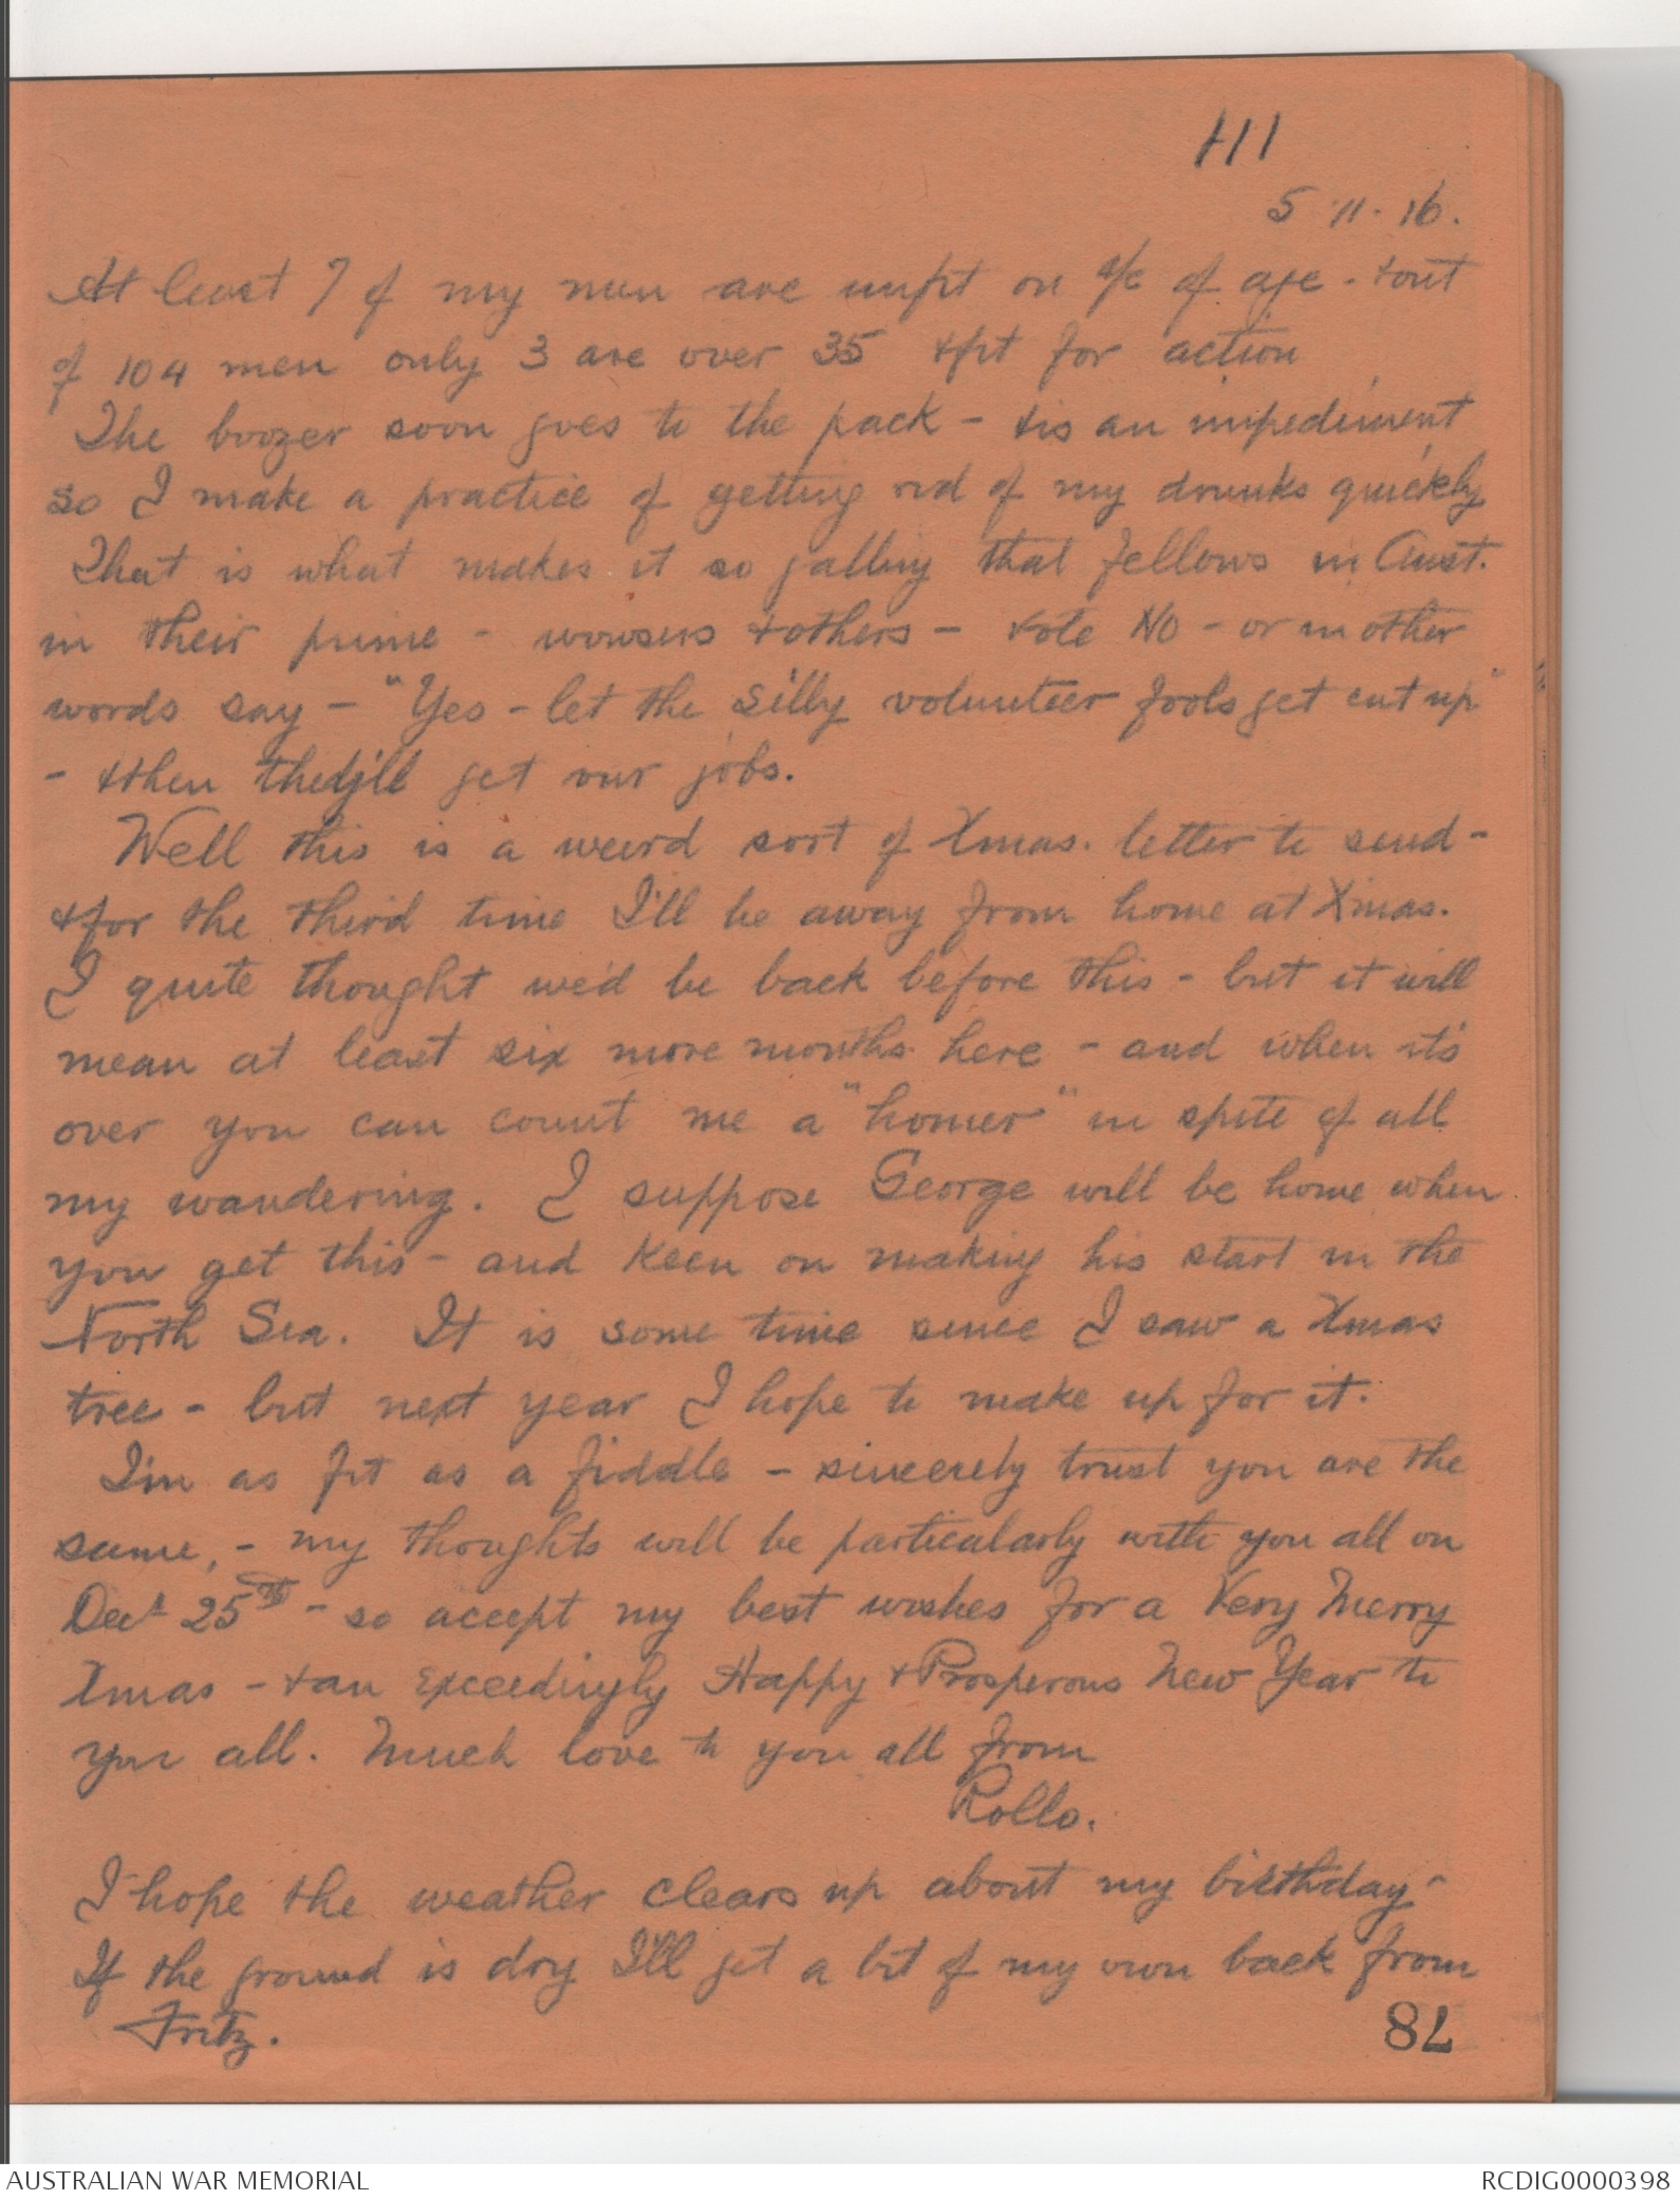 111
5·11·16.
At least 7 of my men are unfit on a/c of age - & out
of 104 men only 3 are over 35 & fit for action
The boozer soon goes to the pack - & is an impediment
so I make a practice of getting rid of my drunks quickly
That is what makes it so galling that fellows in Aust.
in their prime - wowsers & others - vote NO - or in other
words say - "Yes - let the silly volunteer fools get cut up"
- & then they'll get our jobs.
Well this is a weird sort of Xmas. letter to send -
& for the third time I'll be away from home at Xmas.
I quite thought we'd be back before this - but it will
mean at least six more months here - and when it's
over you can count me a "homer" in spite of all
my wandering. I suppose George will be home when
you get this - and keen on making his start in the
North Sea. It is some time since I saw a Xmas
tree - but next year I hope to make up for it.
I'm as fit as a fiddle - sincerely trust you are the
same, - my thoughts will be particularly with you all on
Dec. 25th - so accept my best wishes for a Very Merry
Xmas - & an exceedingly Happy & Prosperous New Year to
you all. Much love to you all from
Rollo.
I hope the weather clears up about my birthday -
If the ground is dry I'll get a bit of my own back from
Fritz.
78
AUSTRALIAN WAR MEMORIAL
RCDIG0000398